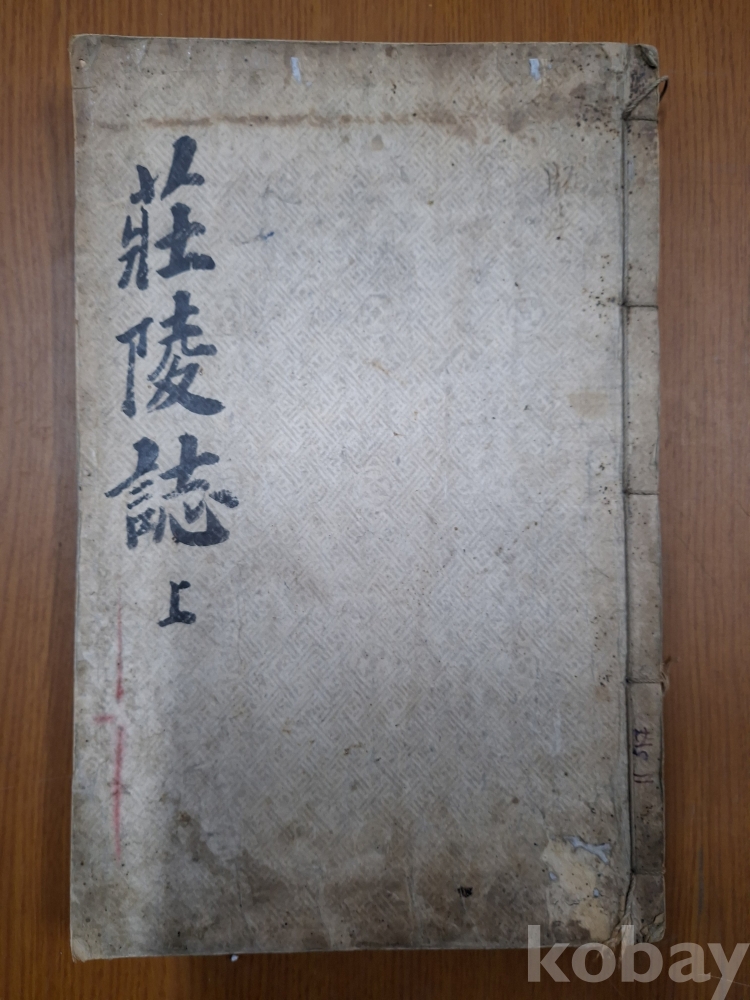 莊陵誌 上
kobay